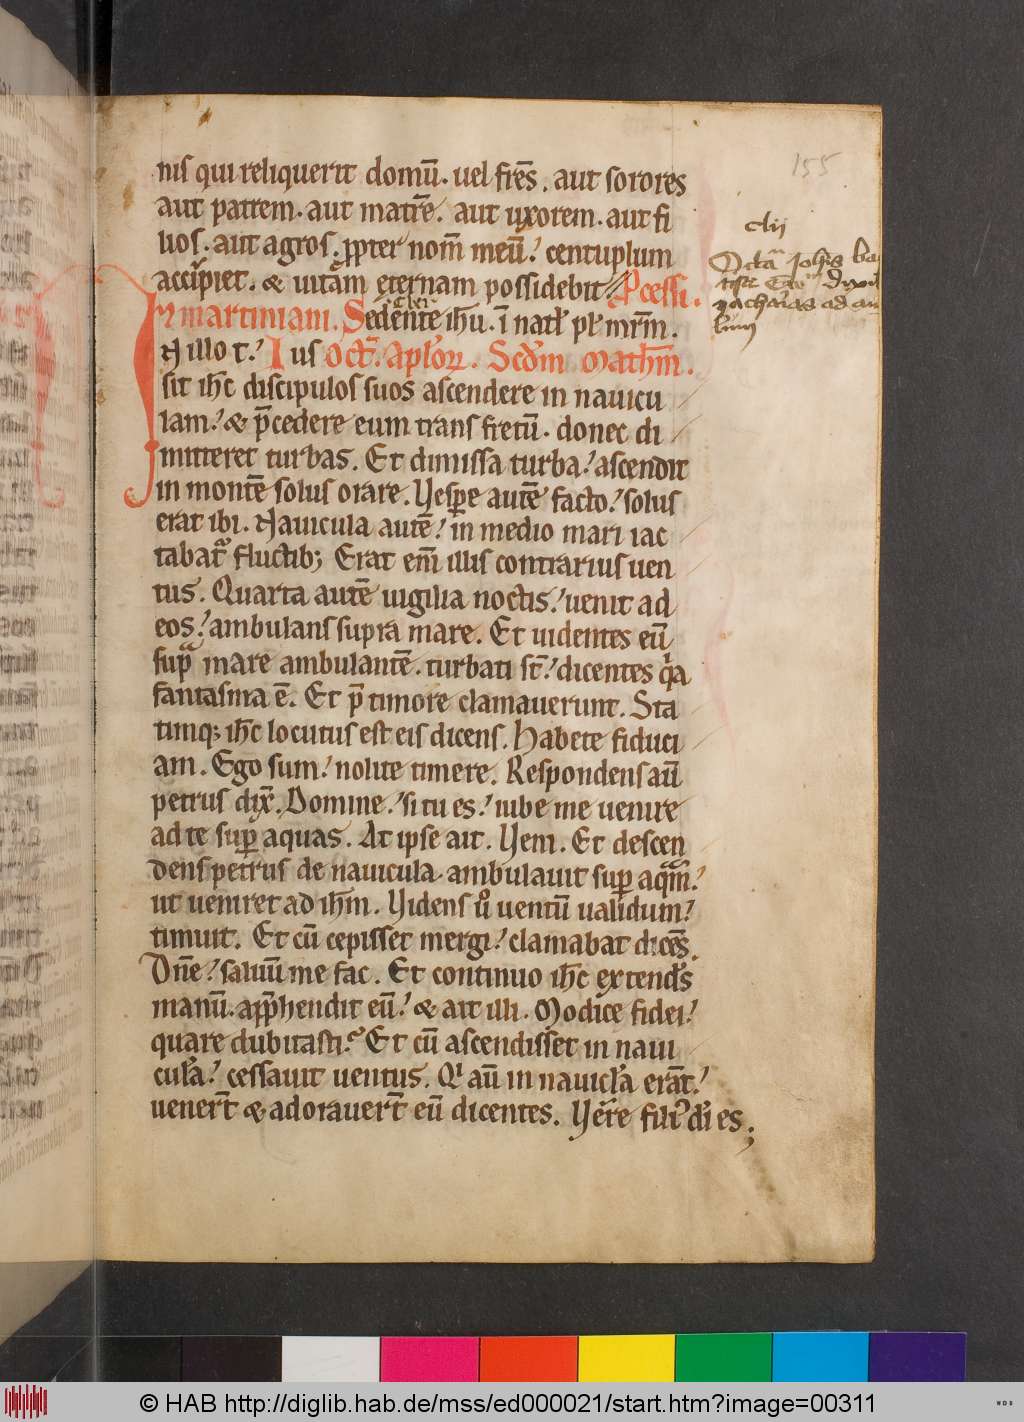 155
nis qui reliquerit domū. uel frēs. aut sorores
aut patrem. aut matrē. aut uxorem. aut fi
lios. aut agros. ꝓpter nom̄ meū. centuplum
accipiet. & uitam eternam possidebit. Pcessi.
& martiniani. Sedente ihū. ī natł pl' mr̄m.
N illo t. Ius Oct̄. Apl'oꝝ. Scd'm Math'm.
sit ih̄c discipulos suos ascendere in nauicu
lam. & p̄cedere eum trans fretū. donec di
mitteret turbas. Et dimissa turba. ascendit
in montē solus orare. Uesꝑe autē facto. solus
erat ibi. Nauicula autē. in medio mari iac
tabat' fluctib; Erat em̄ illis contrarius uen
tus. Quarta autē uigilia noctis. uenit ad
eos. ambulans supra mare. Et uidentes eū
sup̃ mare ambulantē. turbati st̄. dicentes qia
fantasma ē. Et p̄ timore clamauerunt. Sta
timq; ih̄c locutus est eis dicens. Habete fiduci
am. Ego sum. nolite timere. Respondens aū
petrus dix̄. Domine. si tu es. iube me uenire
ad te suꝑ aquas. At ipse ait. Ueni. Et descen
dens petrus de nauicula. ambulauit suꝑ aq̃m.
ut ueniret ad ih̄m. Uidens u° uentū ualidum.
timuit. Et cū cepisset mergi. clamabat dicēs.
Dn̄e. saluū me fac. Et continuo ih̄c extend's
manū. app̄hendit eū. & ait illi. Modice fidei.
quare dubitasti. Et cū ascendisset in naui
cul'a. cessauit uentus. Qi aū in nauicl'a erāt.
uener̄t & adorauer̄t eū dicentes. Uere filī di es;
clii
Octā Johīs ba
zacharias ad an
© HAB http://diglib.hab.de/mss/ed000021/start.htm?image=00311